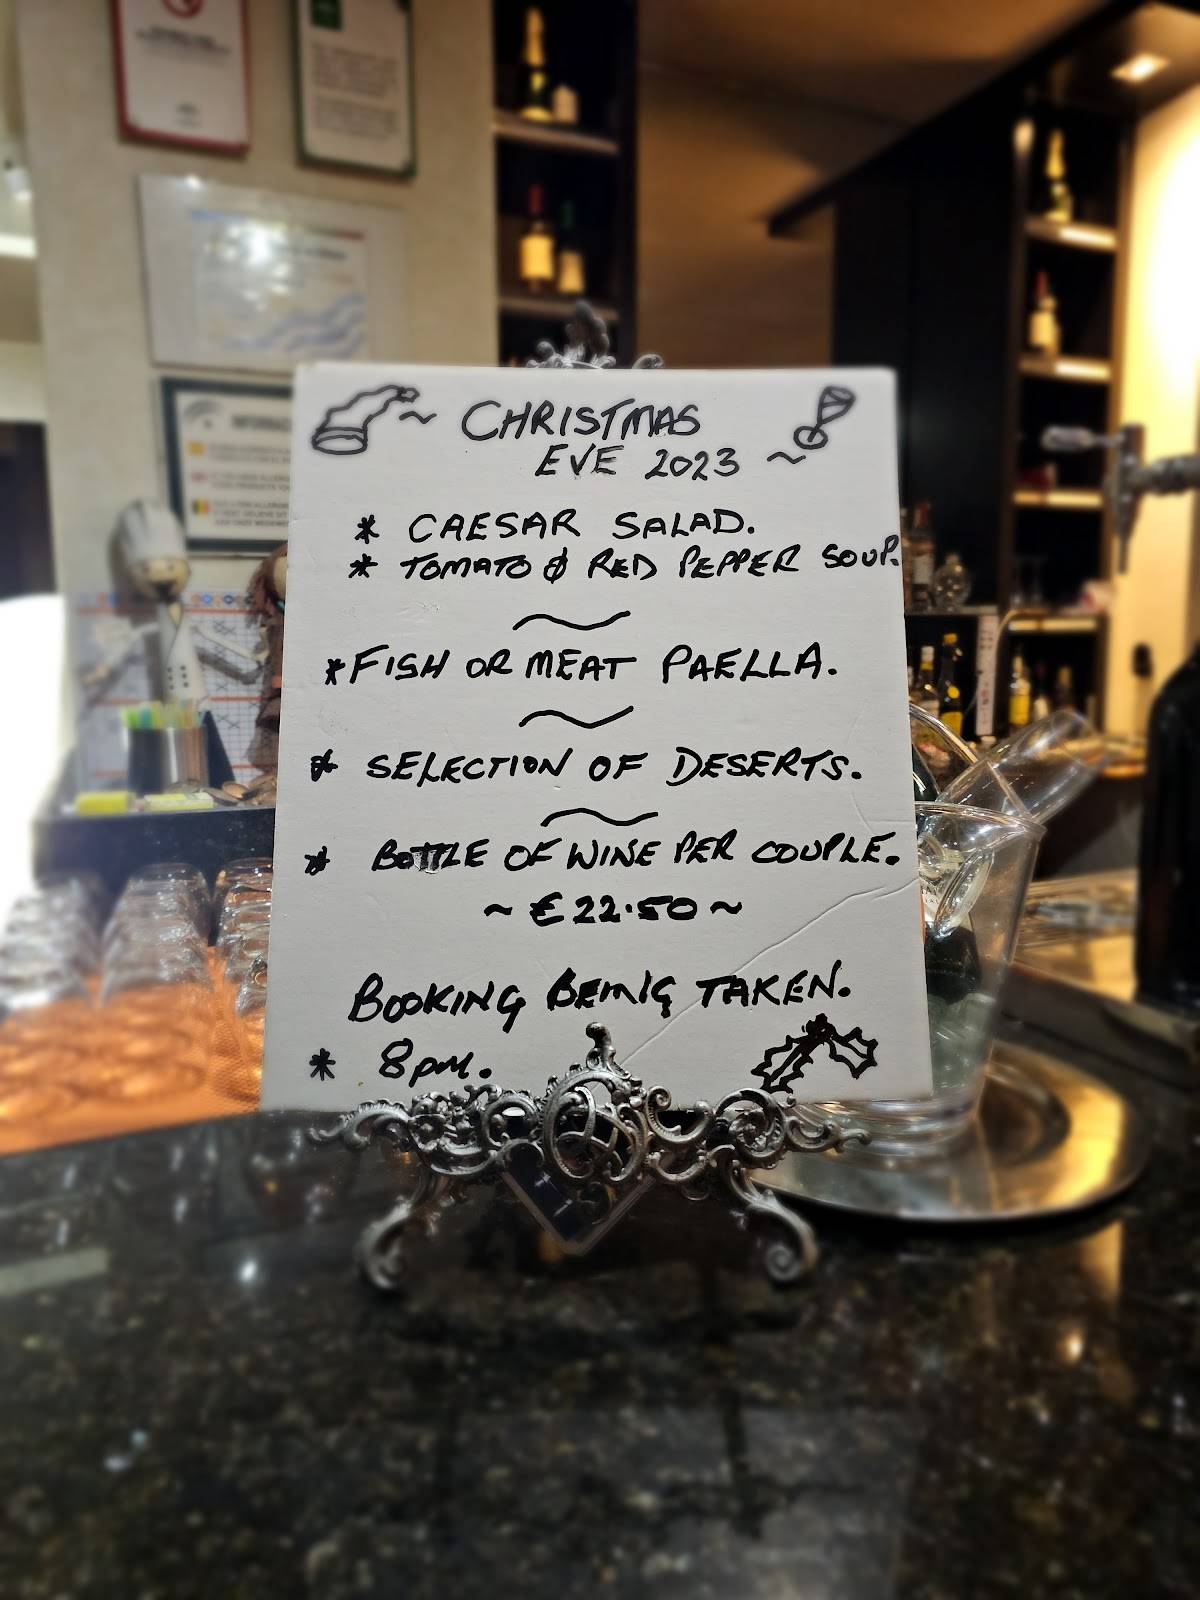 ~ CHRISTMAS
EVE 2023 ~
* CAESAR SALAD.
* TOMATO & RED PEPPER SOUP.
~
* FISH OR MEAT PAELLA.
~
* SELECTION OF DESERTS.
~
* BOTTLE OF WINE PER COUPLE.
~ € 22.50 ~
BOOKING BEING TAKEN.
* 8pm.